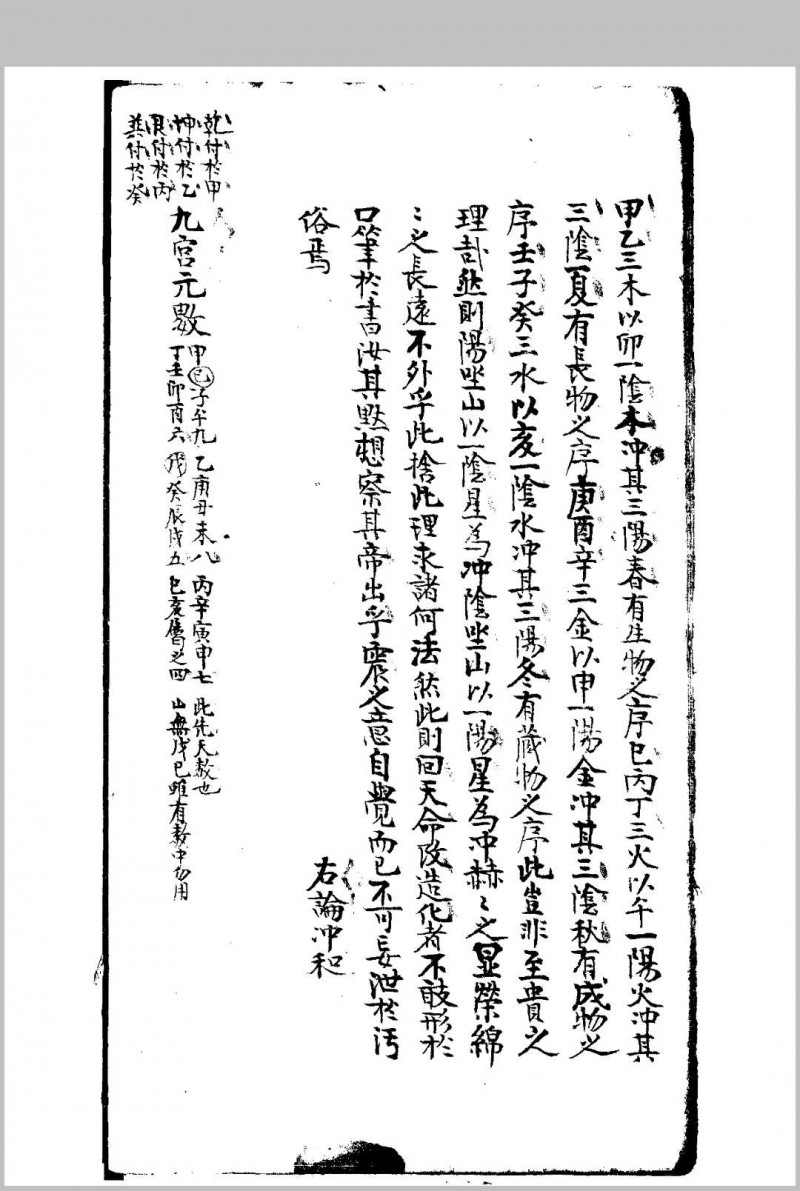 甲乙三木以卯一陰木冲其三陽春有生物之序巳丙丁三火以午一陽火冲其
三陰夏有長物之序庚酉辛三金以申一陽金冲其三陰秋有成物之
序壬子癸三水以亥一陰水冲其三陽冬有藏物之序此豈非至貴之
理哉然則陽坐山以一陰星為冲陰坐山以一陽星為冲赫〻之显榮綿
〻之長遠不外乎此捨此理求諸何法然此則回天命改造化者不敢形於
口筆於書汝其黙想察其帝出乎震之意自覺而已不可妄泄於汚
俗焉
右論冲和
乾付於甲
坤付於乙
艮付於丙
巽付於癸
九宮元數
甲己子午九 乙庚丑未八 丙辛寅申七 此先天数也
丁壬卯酉六 戊癸辰戌五 巳亥屬之四 山無戊己雖有数中勿用